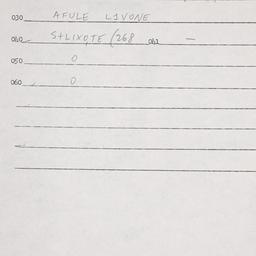 030 AFULE LIVONE
040 S+LIXOTE /268 041 —
050 0
060 0